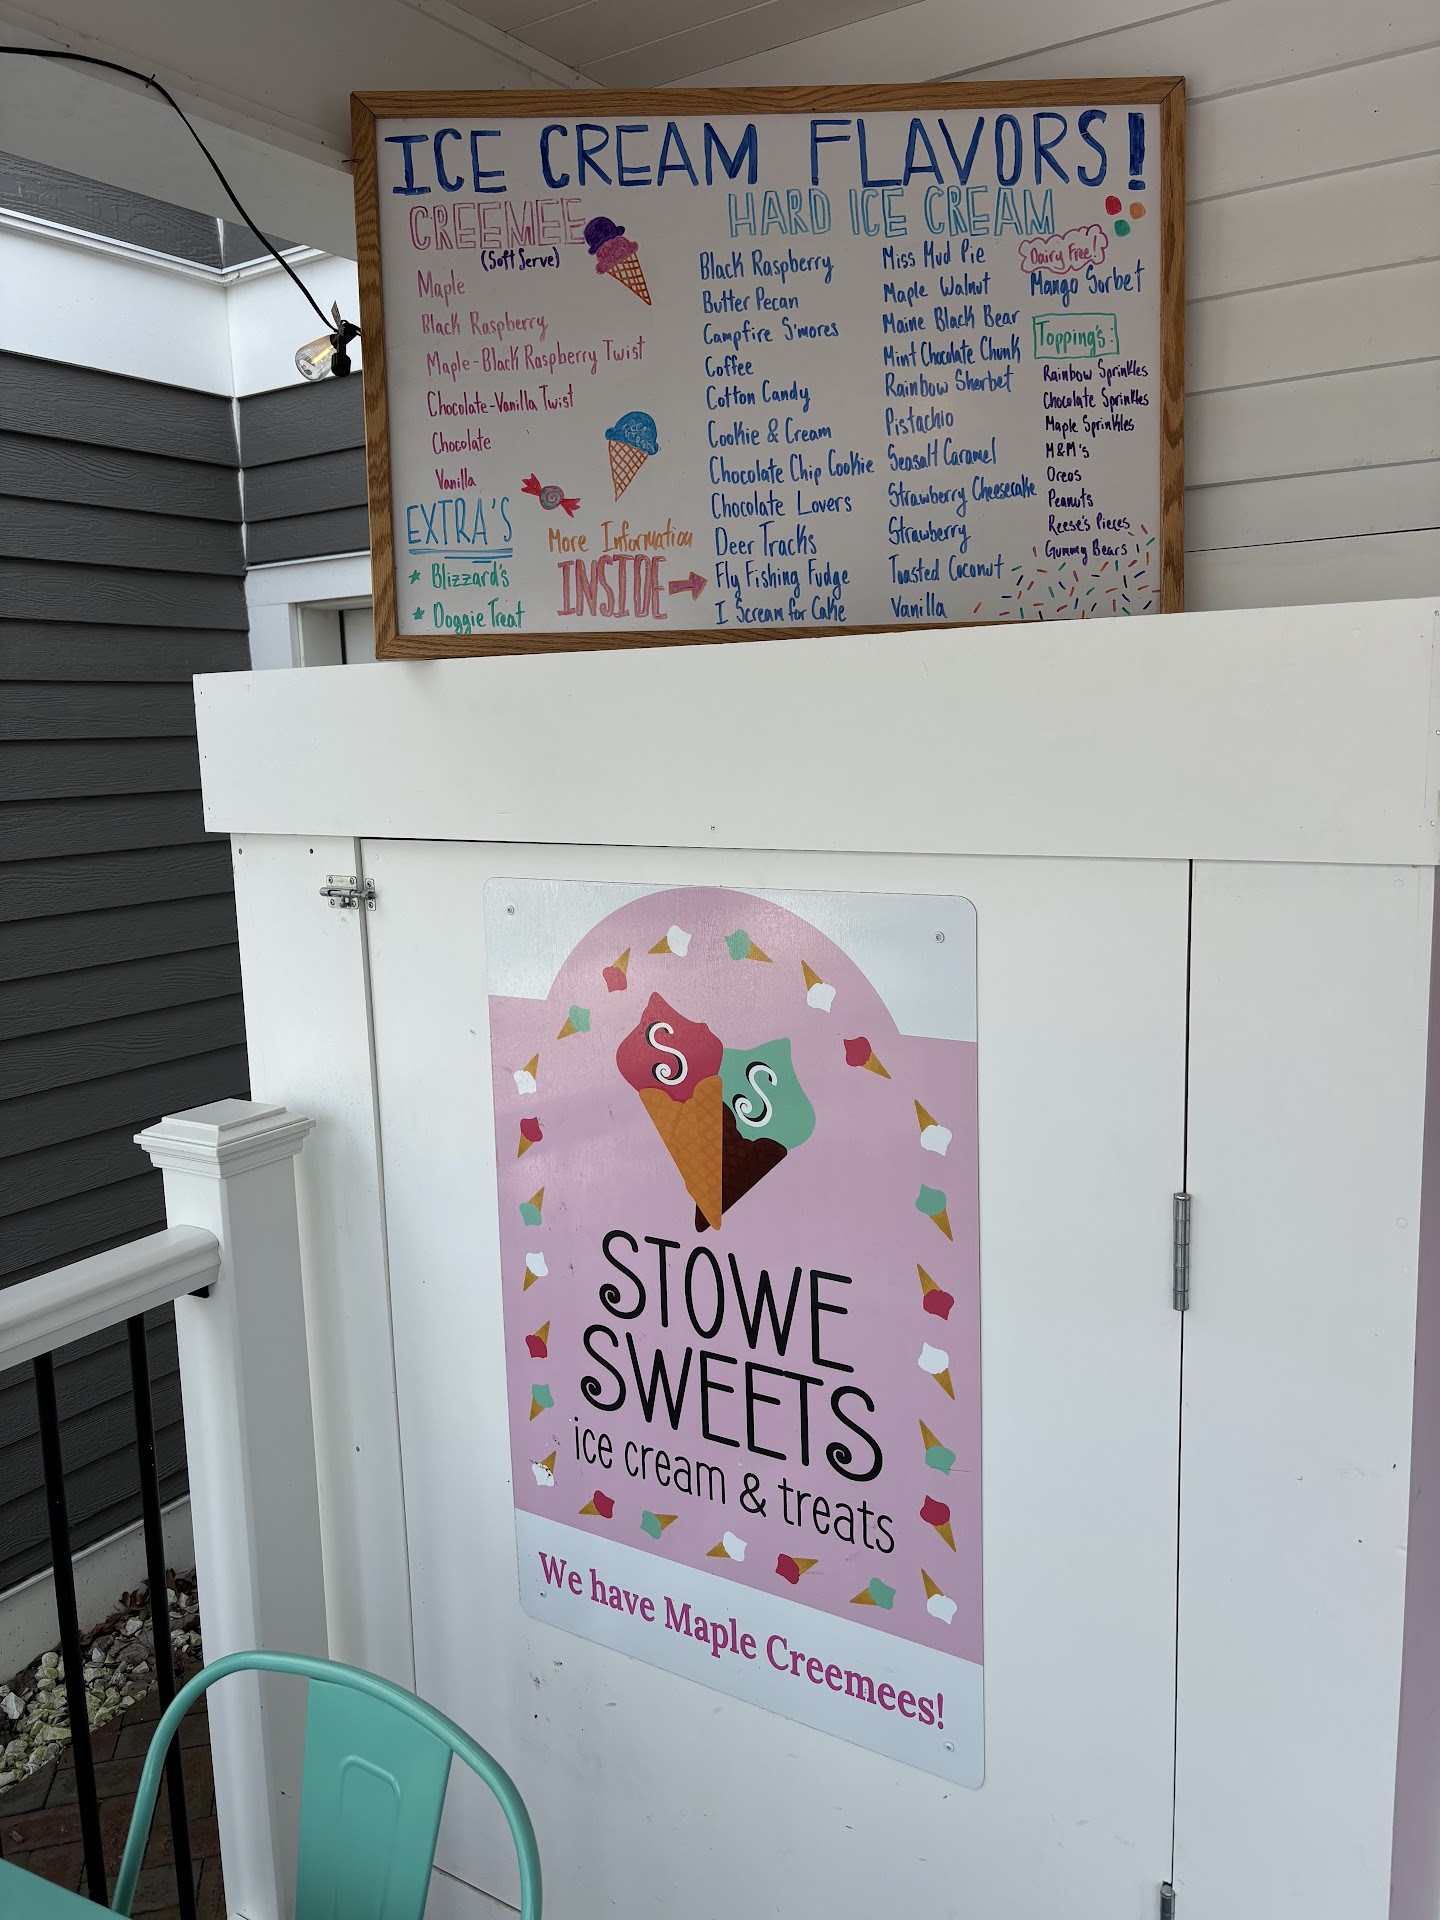 ICE CREAM FLAVORS!
CREEMEE
(Soft Serve)
Maple
Black Raspberry
Maple-Black Raspberry Twist
Chocolate-Vanilla Twist
Chocolate
Vanilla
EXTRA'S
Blizzard's
Doggie Treat
More Information
INSIDE
HARD ICE CREAM
Black Raspberry
Butter Pecan
Campfire S'mores
Coffee
Cotton Candy
Cookie & Cream
Chocolate Chip Cookie
Chocolate Lovers
Deer Tracks
Fly Fishing Fudge
I Scream for Cake
Miss Mud Pie
Maple Walnut
Maine Black Bear
Mint Chocolate Chunk
Rainbow Sherbet
Pistachio
Seasalt Caramel
Strawberry Cheesecake
Strawberry
Toasted Coconut
Vanilla
Dairy Free!
Mango Sorbet
Topping's:
Rainbow Sprinkles
Chocolate Sprinkles
Maple Sprinkles
M&M's
Oreos
Peanuts
Reese's Pieces
Gummy Bears
S S
STOWE
SWEETS
ice cream & treats
We have Maple Creemees!